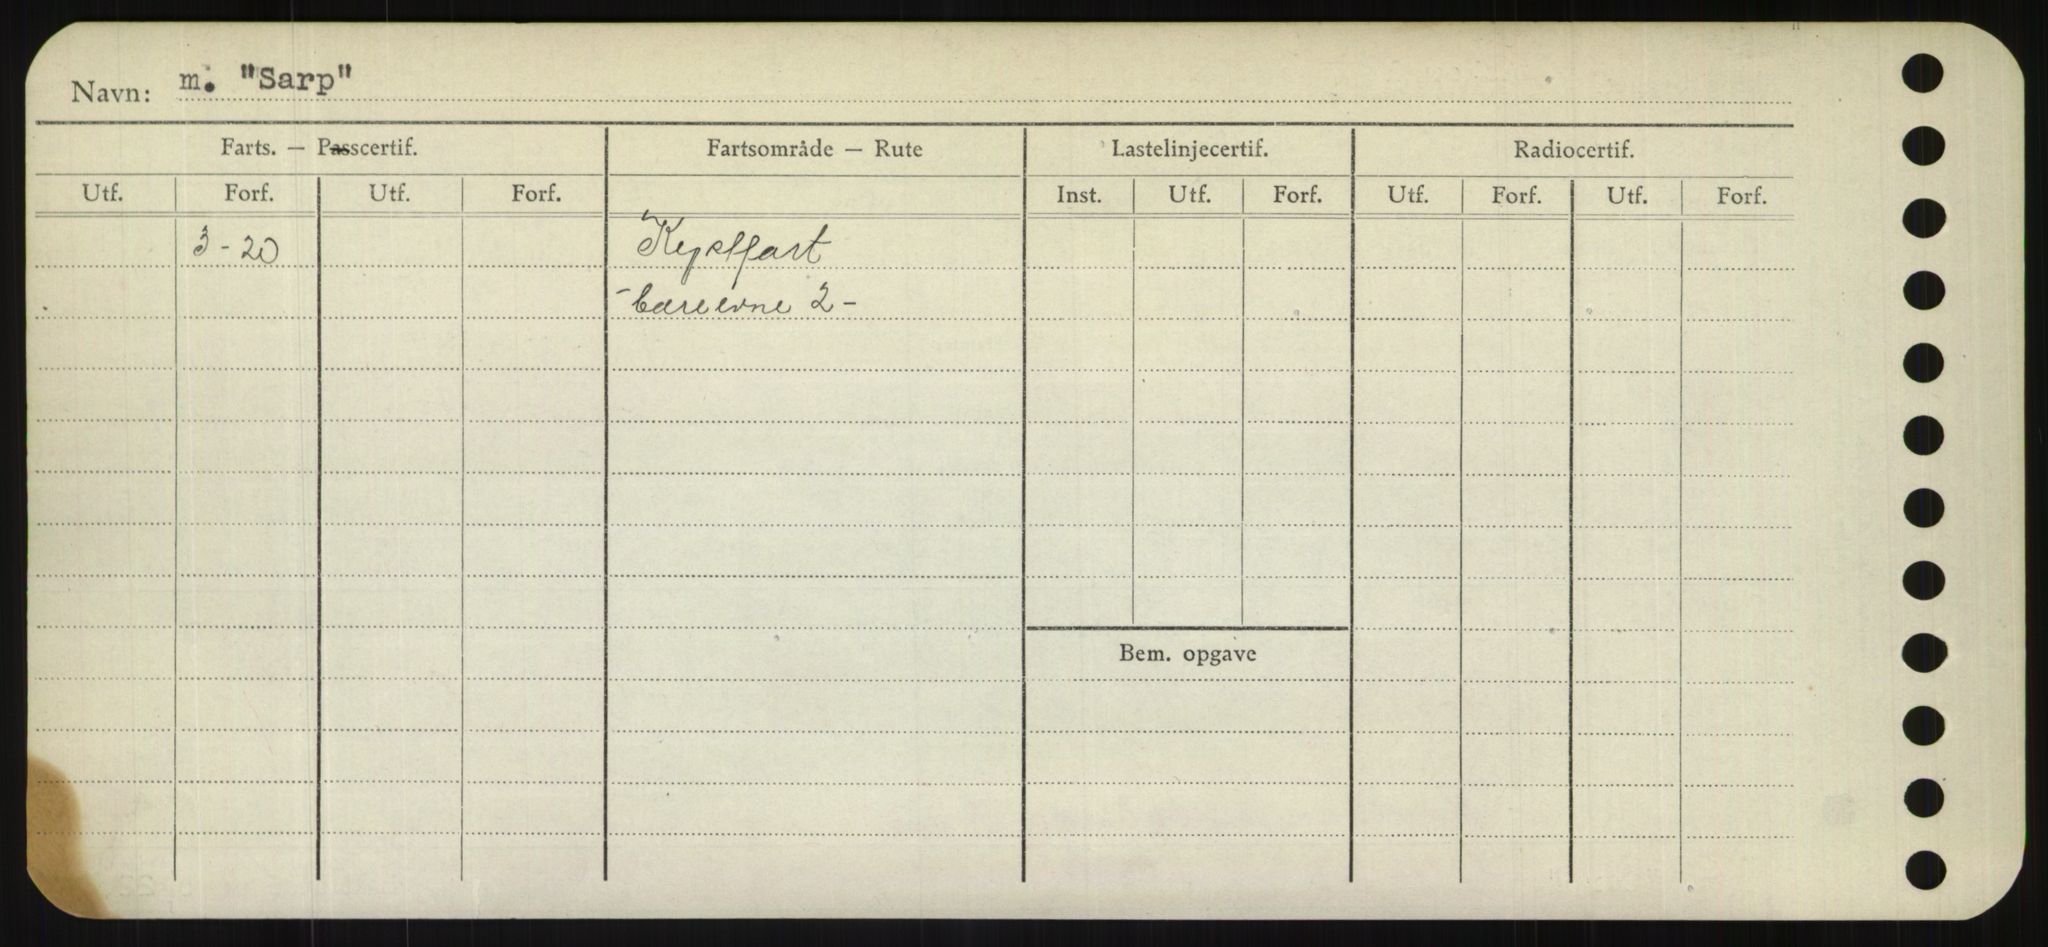 Navn: m. "Sarp"
Farts. — Passcertif. Fartsområde — Rute Lastelinjecertif. Radiocertif.
Utf. Forf. Utf. Forf. Inst. Utf. Forf. Utf. Forf. Utf. Forf.
3-20 Kystfart
-bæreevne 2-
Bem. opgave